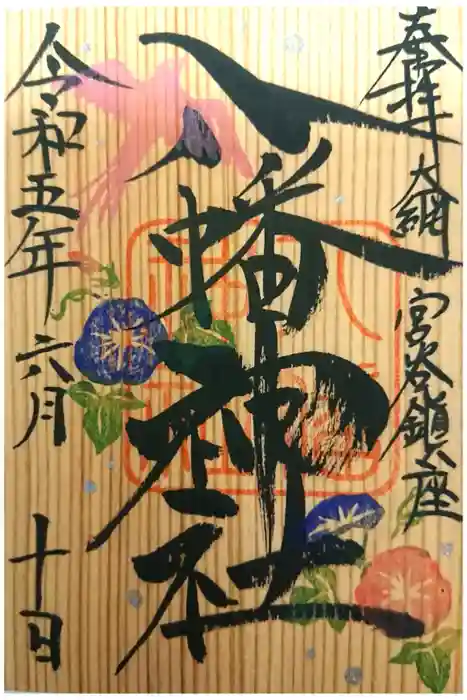 奉拝 大網
宮谷鎮座
八幡神社
令和五年六月十日